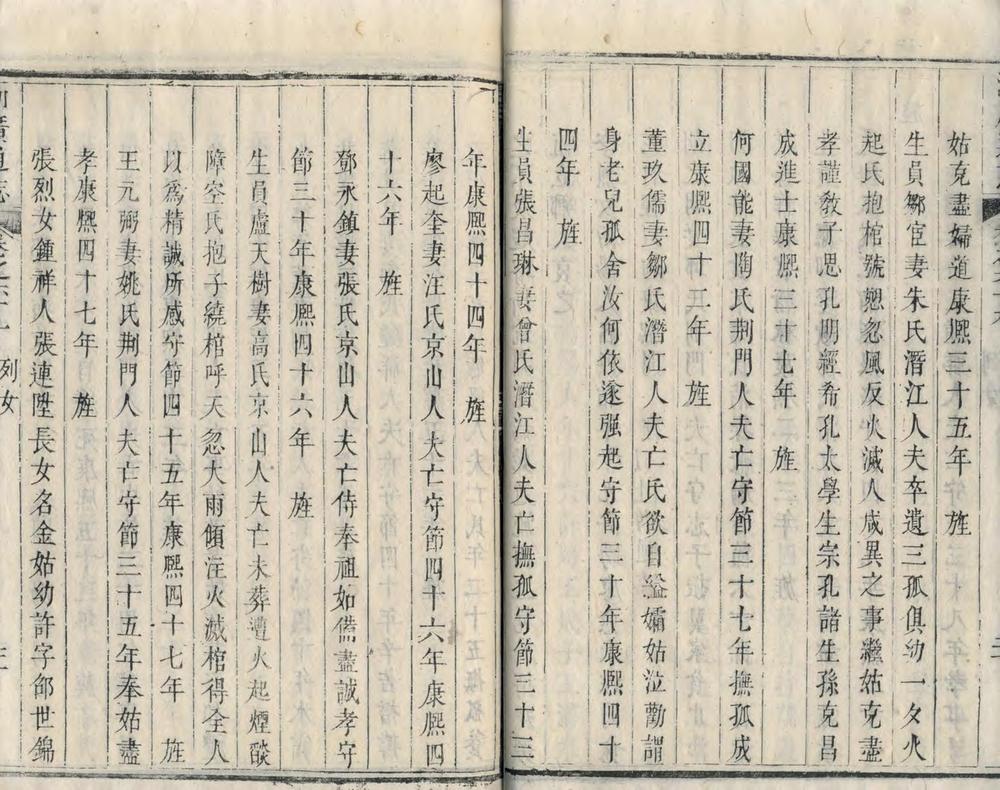 姑克盡婦道康熙三十五年 旌
生員鄒宦妻朱氏潛江人夫卒遺三孤俱幼一夕火
起氏抱棺號慟忽風反火滅人咸異之事繼姑克盡
孝謹教子思孔明經希孔太學生宗孔諸生孫克昌
成進士康熙三十七年 旌
何國能妻陶氏荆門人夫亡守節三十七年撫孤成
立康熙四十二年 旌
董玖儒妻鄒氏潛江人夫亡氏欲自縊孀姑泣勸謂
身老兒孤舍汝何依遂强起守節三十年康熙四十
四年 旌
生員張昌琳妻曾氏潛江人夫亡撫孤守節三十三
年康熙四十四年 旌
廖起奎妻汪氏京山人夫亡守節四十六年康熙四
十六年 旌
鄧永鎮妻張氏京山人夫亡侍奉祖姑備盡誠孝守
節三十年康熙四十六年 旌
生員盧天樹妻高氏京山人夫亡未葬遭火起煙燄
障空氏抱子繞棺呼天忽大雨傾注火滅棺得全人
以爲精誠所感守節四十五年康熙四十七年 旌
王元弼妻姚氏荆門人夫亡守節三十五年奉姑盡
孝康熙四十七年 旌
張烈女鍾祥人張連陞長女名金姑幼許字郃世錦
列女